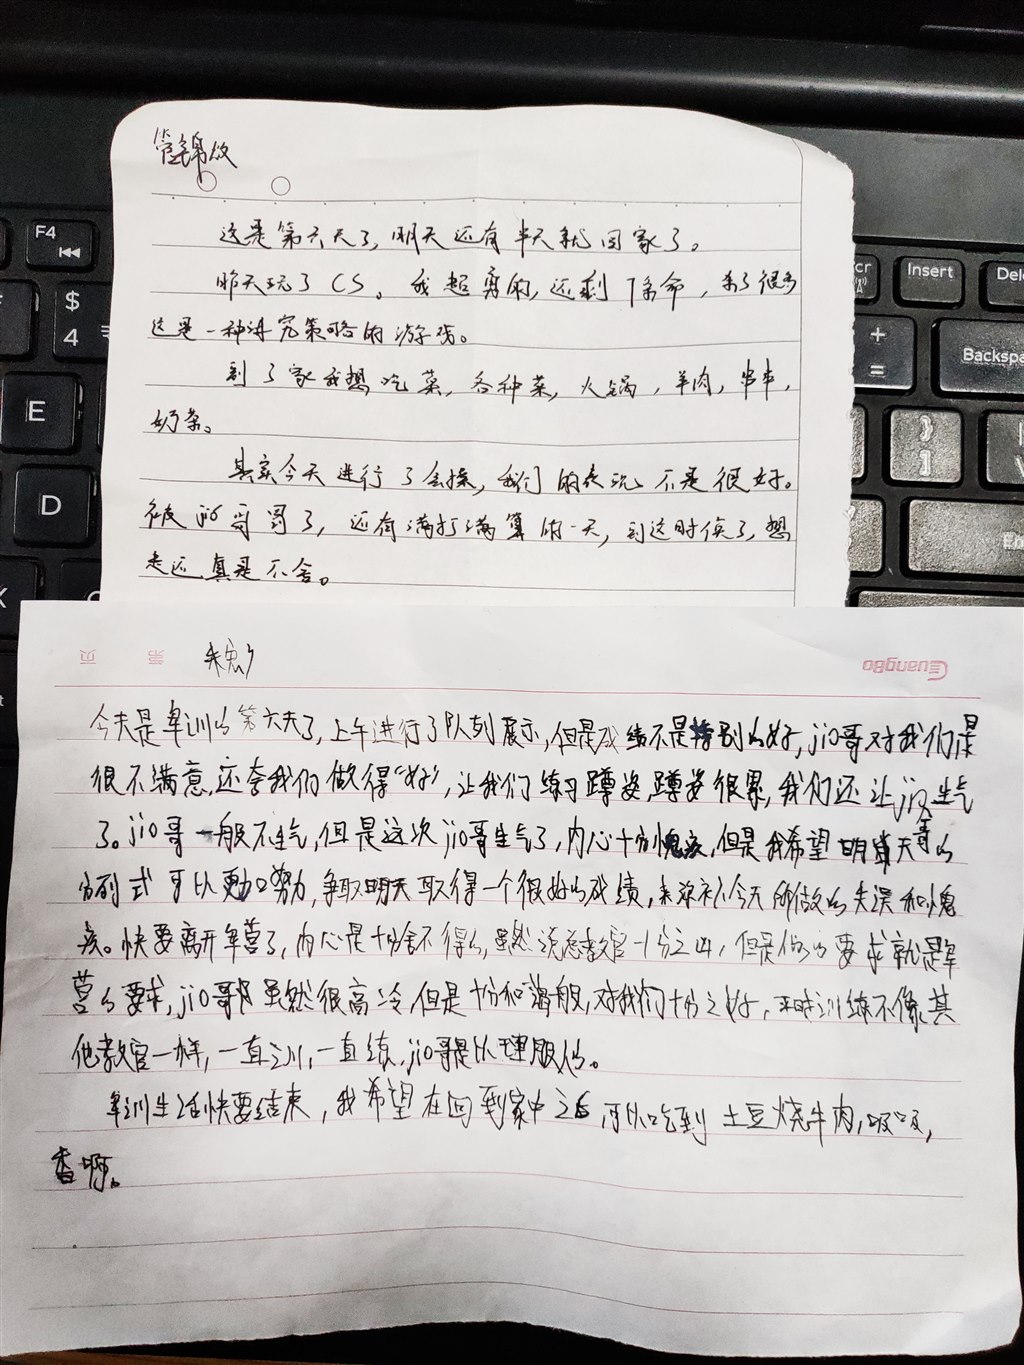 管锦
这是第六天了，明天还有半天就回家了。
昨天玩了CS。我超勇的，还剩7条命，杀了很多
这是一种讲究策略的游戏。
到了家我想吃菜，各种菜，火锅，羊肉，串串，
奶茶。
其实今天进行了会操，我们的表现不是很好。
被jio哥骂了，还有满打满算的一天，到这时候了，想
走还真是不舍。
页 第 朱
GuangBo
今天是军训的第六天了，上午进行了队列展示，但是成绩不是特别的好，jio哥对我们是
很不满意，还夸我们做得“好”，让我们练习蹲姿，蹲姿很累，我们还让jio哥生气
了。jio哥一般不生气，但是这次jio哥生气了，内心十分愧疚，但是我希望明天的
分列式可以更加努力，争取明天取得一个很好的成绩，来弥补今天所做的失误和愧
疚。快要离开军营了，内心是十分舍不得的，虽然说总教官十分之凶，但是他的要求就是军
营的要求，jio哥虽然很高冷，但是十分和蔼般，对我们十分之好，平时训练不像其
他教官一样，一直训，一直练，jio哥是以理服人。
军训生活快要结束，我希望在回到家中之后，可以吃到土豆烧牛肉，吸吸，
香啊。
F4
$
4
E
D
K
Insert
+
=
Backspa
}
]